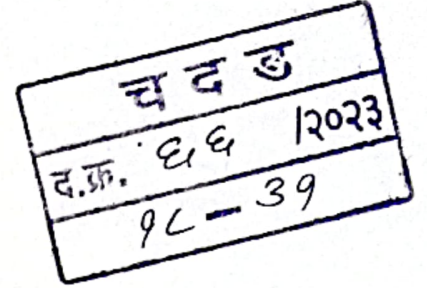 च द ड
द.क्र. ६६ /२०२३
१८ - ३१